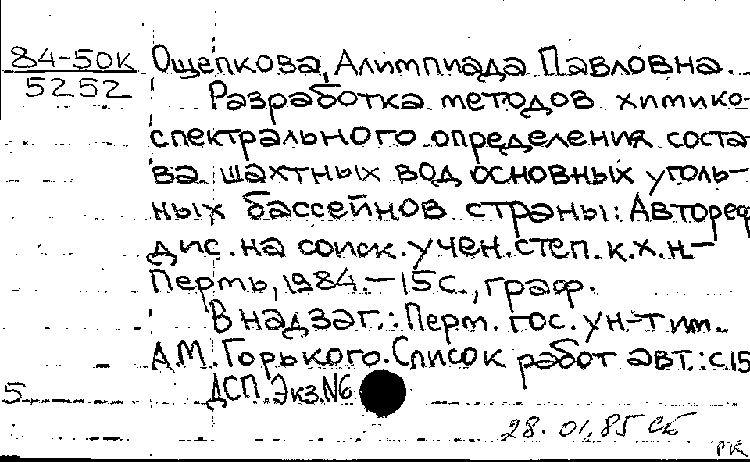 84-50К Ощепкова, Алимпиада Павловна.
5252 Разработка методов химико-
спектрального определения соста-
ва шахтных вод основных уголь-
ных бассейнов страны: Автореф
дис. на соиск. учен. степ. к.х.н.-
Пермь, 1984.-15с., граф.
В надзаг.: Перм. гос. ун-т им.
А.М. Горького. Список работ авт.: с.15
ДСП. Экз.N6
5
28.01.85 СБ
РК